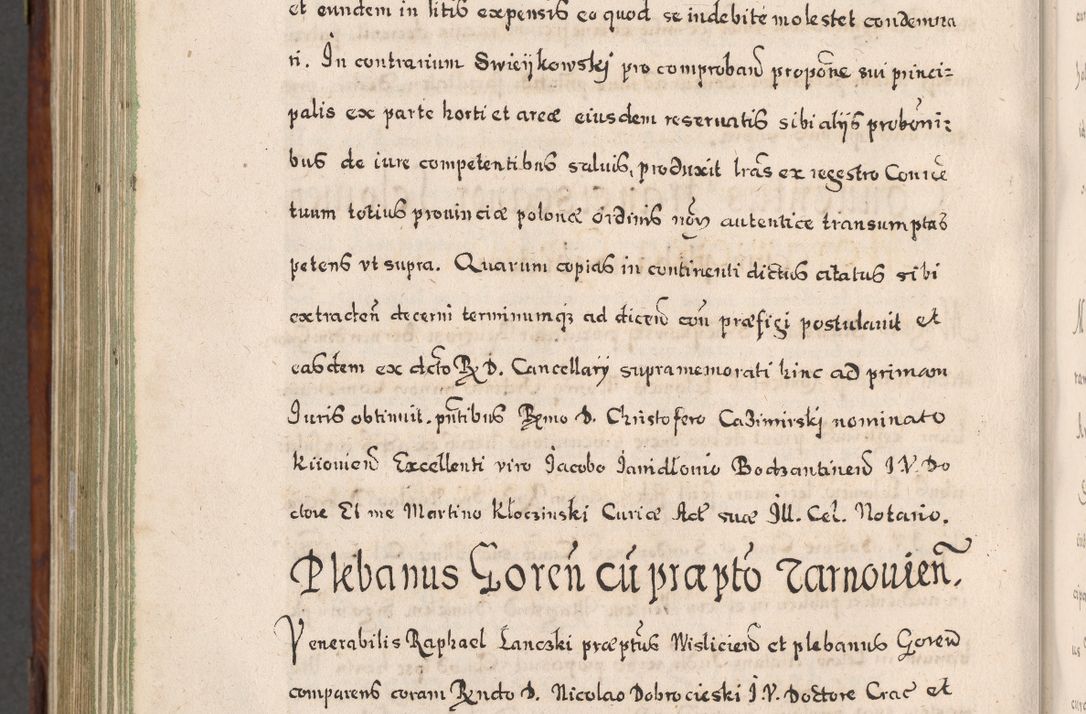 et eundem in litis expensis eo quod se indebite molestet condemna
ri. In contrarium Swieijkowskj pro comproban propone sui princi=
palis ex parte horti et areæ eiusdem reseruatis sibi alijs proboni=
bus de iure competentibus saluis, produxit lras ex regestro Conue
tuum totius prouinciæ polonæ ordinis autentice transumptas
petens vt supra. Quarum copias in continenti dictus citatus sibi
extraden decerni terminumq ad dicen con præfigi postulauit et
easdem ex dicto R D. Cancellarij supramemorati hinc ad primam
Iuris obtinuit. pntibus Rmo D. Christofero Cazimirskj nominato
Kiiouien Excellenti viro Jacobo Janidlouio Bodzantinen I.V. Do
ctore Et me Martino Kłoczinski Curiæ Act suæ Ill. Cel. Notario.
Plebanus Goren cu præpto Tarnouien.
Venerabilis Raphael Lanczki præptus Wislicien et plebanus Goren
comparens coram Rndo D. Nicolao Dobrocieski I.V. Doctore Crac et